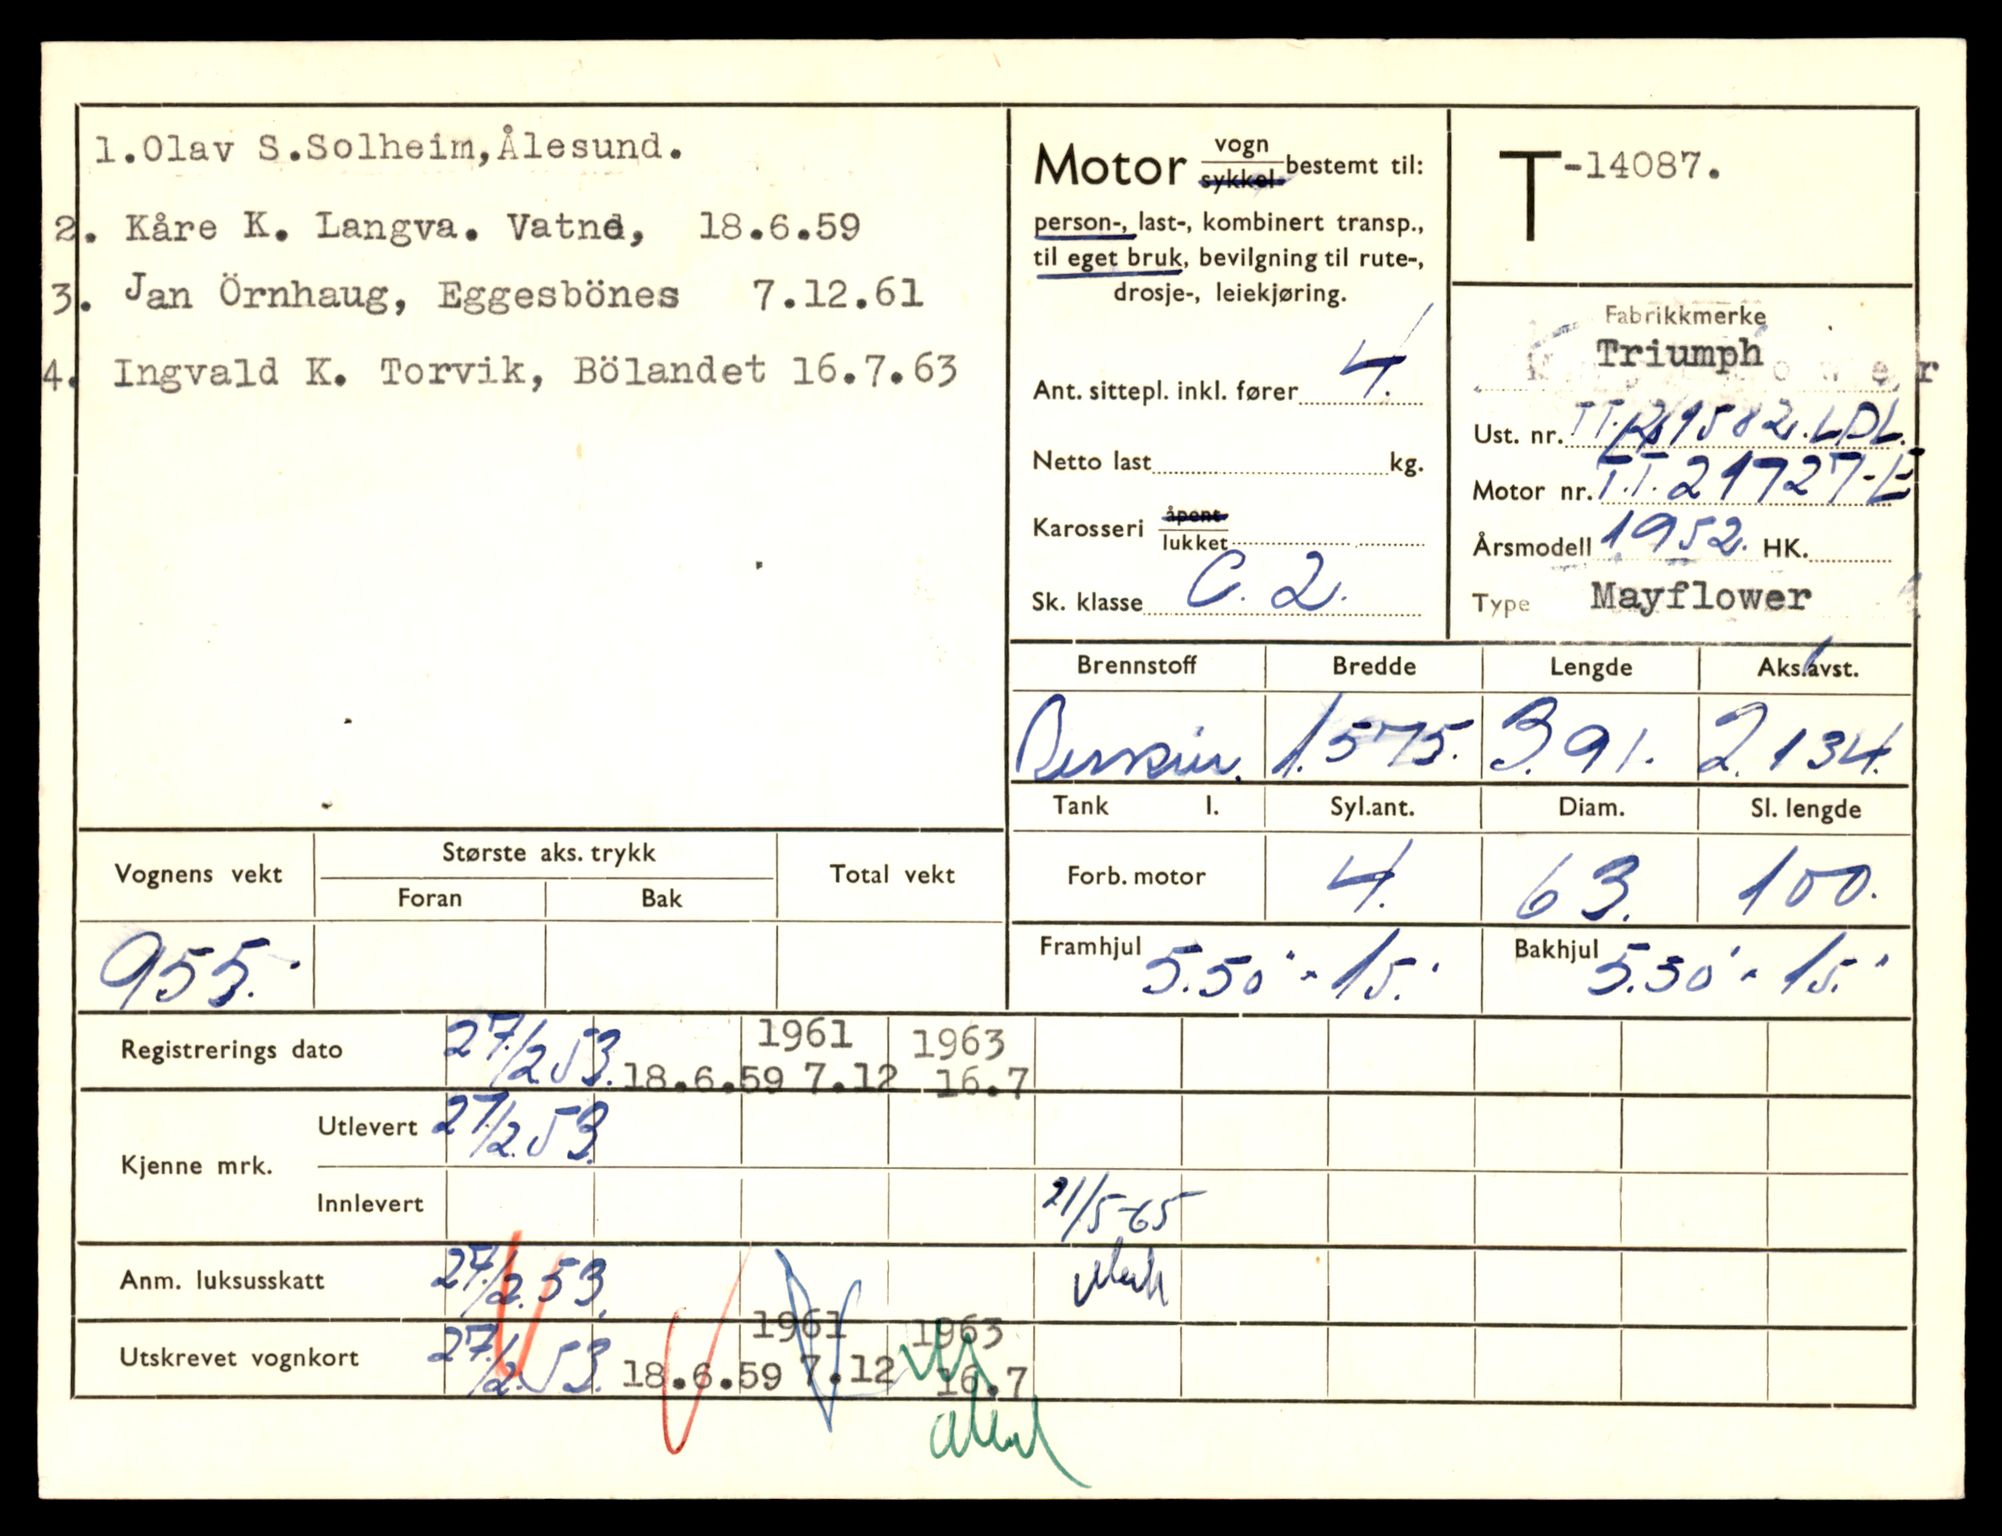 1.Olav S.Solheim,Ålesund.
2. Kåre K. Langva. Vatne, 18.6.59
3. Jan Örnhaug, Eggesbönes 7.12.61
4. Ingvald K. Torvik, Bölandet 16.7.63
Motor vogn sykkel bestemt til:
person-, last-, kombinert transp.,
til eget bruk, bevilgning til rute-,
drosje-, leiekjøring.
Ant. sittepl. inkl. fører 4.
Netto last kg.
Karosseri åpent
lukket
Sk. klasse C. 2.
T-14087.
Fabrikkmerke
Triumph
Ust. nr. 1582.LDL.
Motor nr. T.T. 21727-E
Årsmodell 1952. HK.
Type Mayflower
Brennstoff Bredde Lengde Aks.avst.
Bensin. 1.575. 3.91. 2.134.
Tank l. Syl.ant. Diam. Sl. lengde
Forb. motor 4. 63. 100.
Framhjul 5.50" - 15." Bakhjul 5.50" - 15."
Vognens vekt Største aks. trykk Total vekt
Foran Bak
955.
Registrerings dato 27/2 53. 18.6.59 1961 7.12 1963 16.7
Kjenne mrk. Utlevert 27/2.53.
Innlevert 21/5-65
Anm. luksusskatt 27/2.53.
Utskrevet vognkort 27/2.53. 18.6.59 1961 7.12 1963 16.7